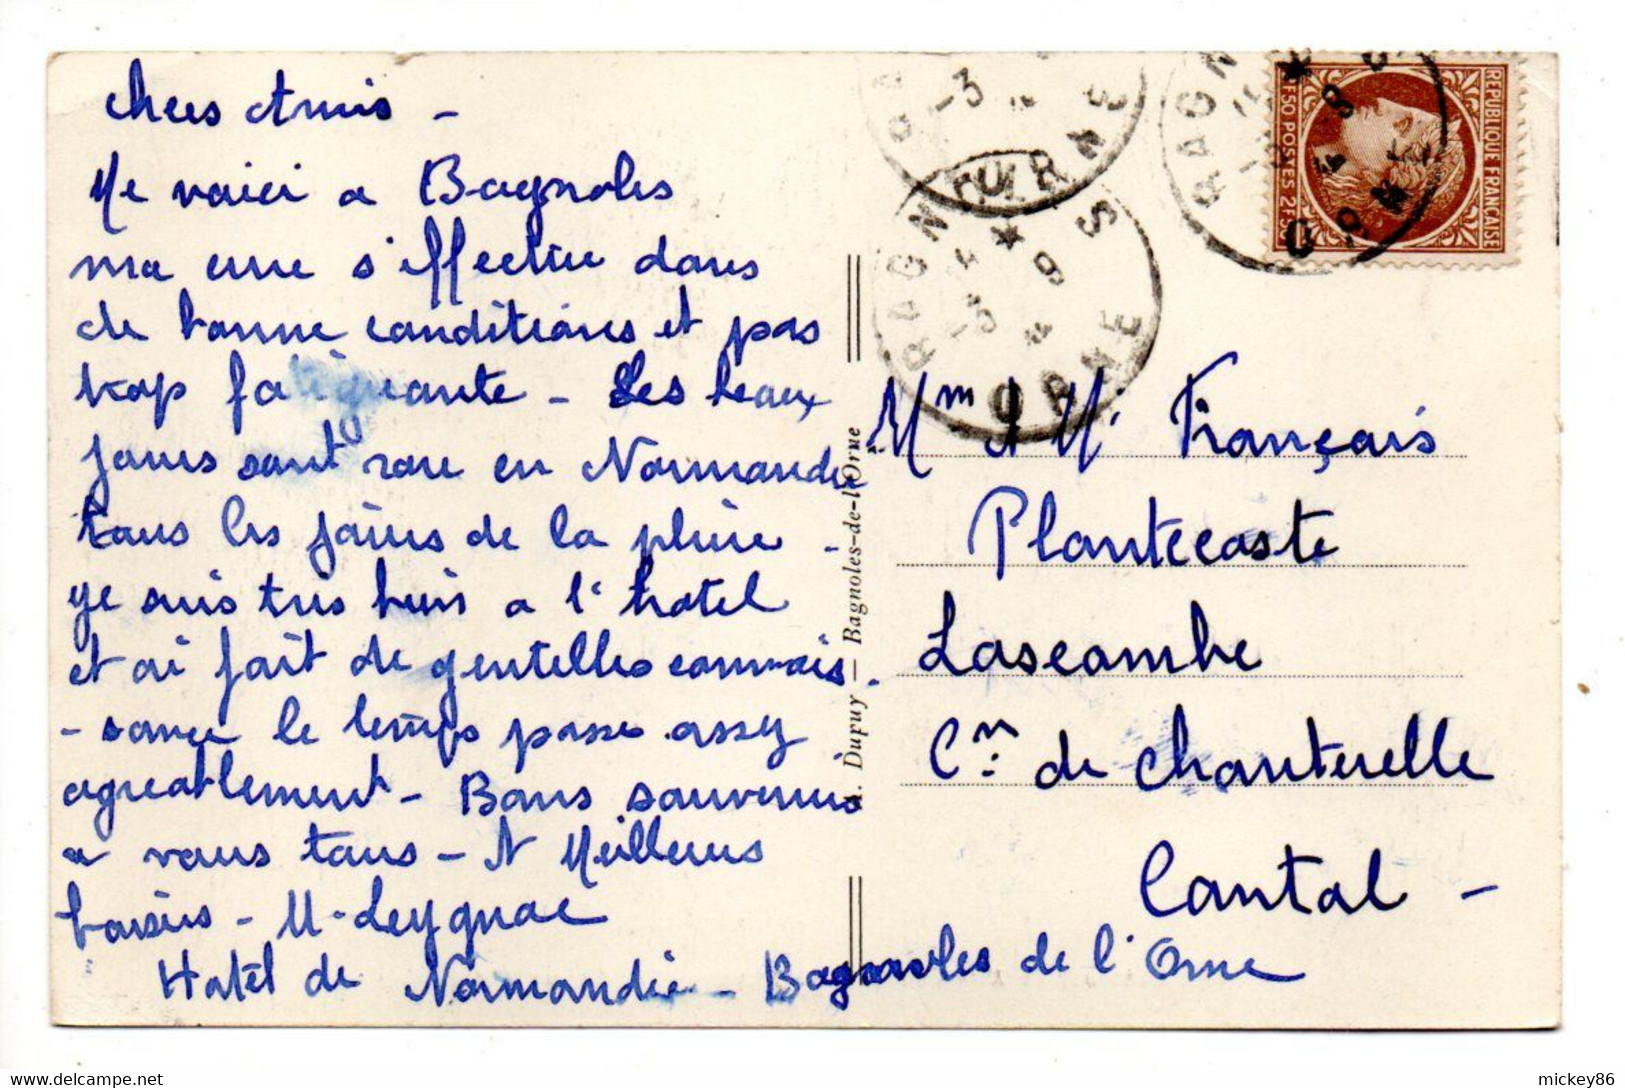 chers Amis -
Me voici a Bagnoles
ma cure s'effectue dans
de bonne conditions et pas
trop fatiguante - Les beaux
jours sont rare en Normandie
tous les jours de la pluie -
je suis tres bien a l'hotel
et ai fait de gentilles connais-
- sance le temps passe assez
agreablement - Bons souvenirs
a vous tous - Meilleurs
baisers - M. Leygnac
Hotel de Normandie - Bagnoles de l'Orne
A. Dupuy — Bagnoles-de-l'Orne
Mm et M. François
Plantecoste
Lascombe
Cn. de Chanterelle
Cantal -
BAGN
ORNE
BAGN S
-3
4
ORNE
BAGN
ORNE
REPUBLIQUE FRANÇAISE
2F.50 POSTES 2F.50
delcampe.net
mickey86